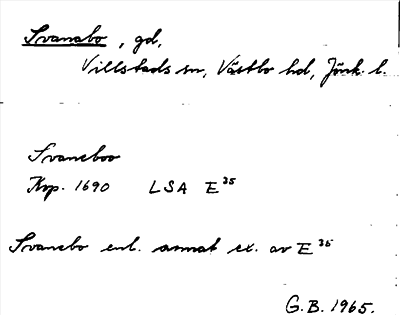 Svanabo, gd,
Villstads sn, Västbo hd, Jönk. l.
Svaneboo
Krp. 1690 LSA E 35
Svanebo enl. annat ex. av E 35
G.B. 1965.